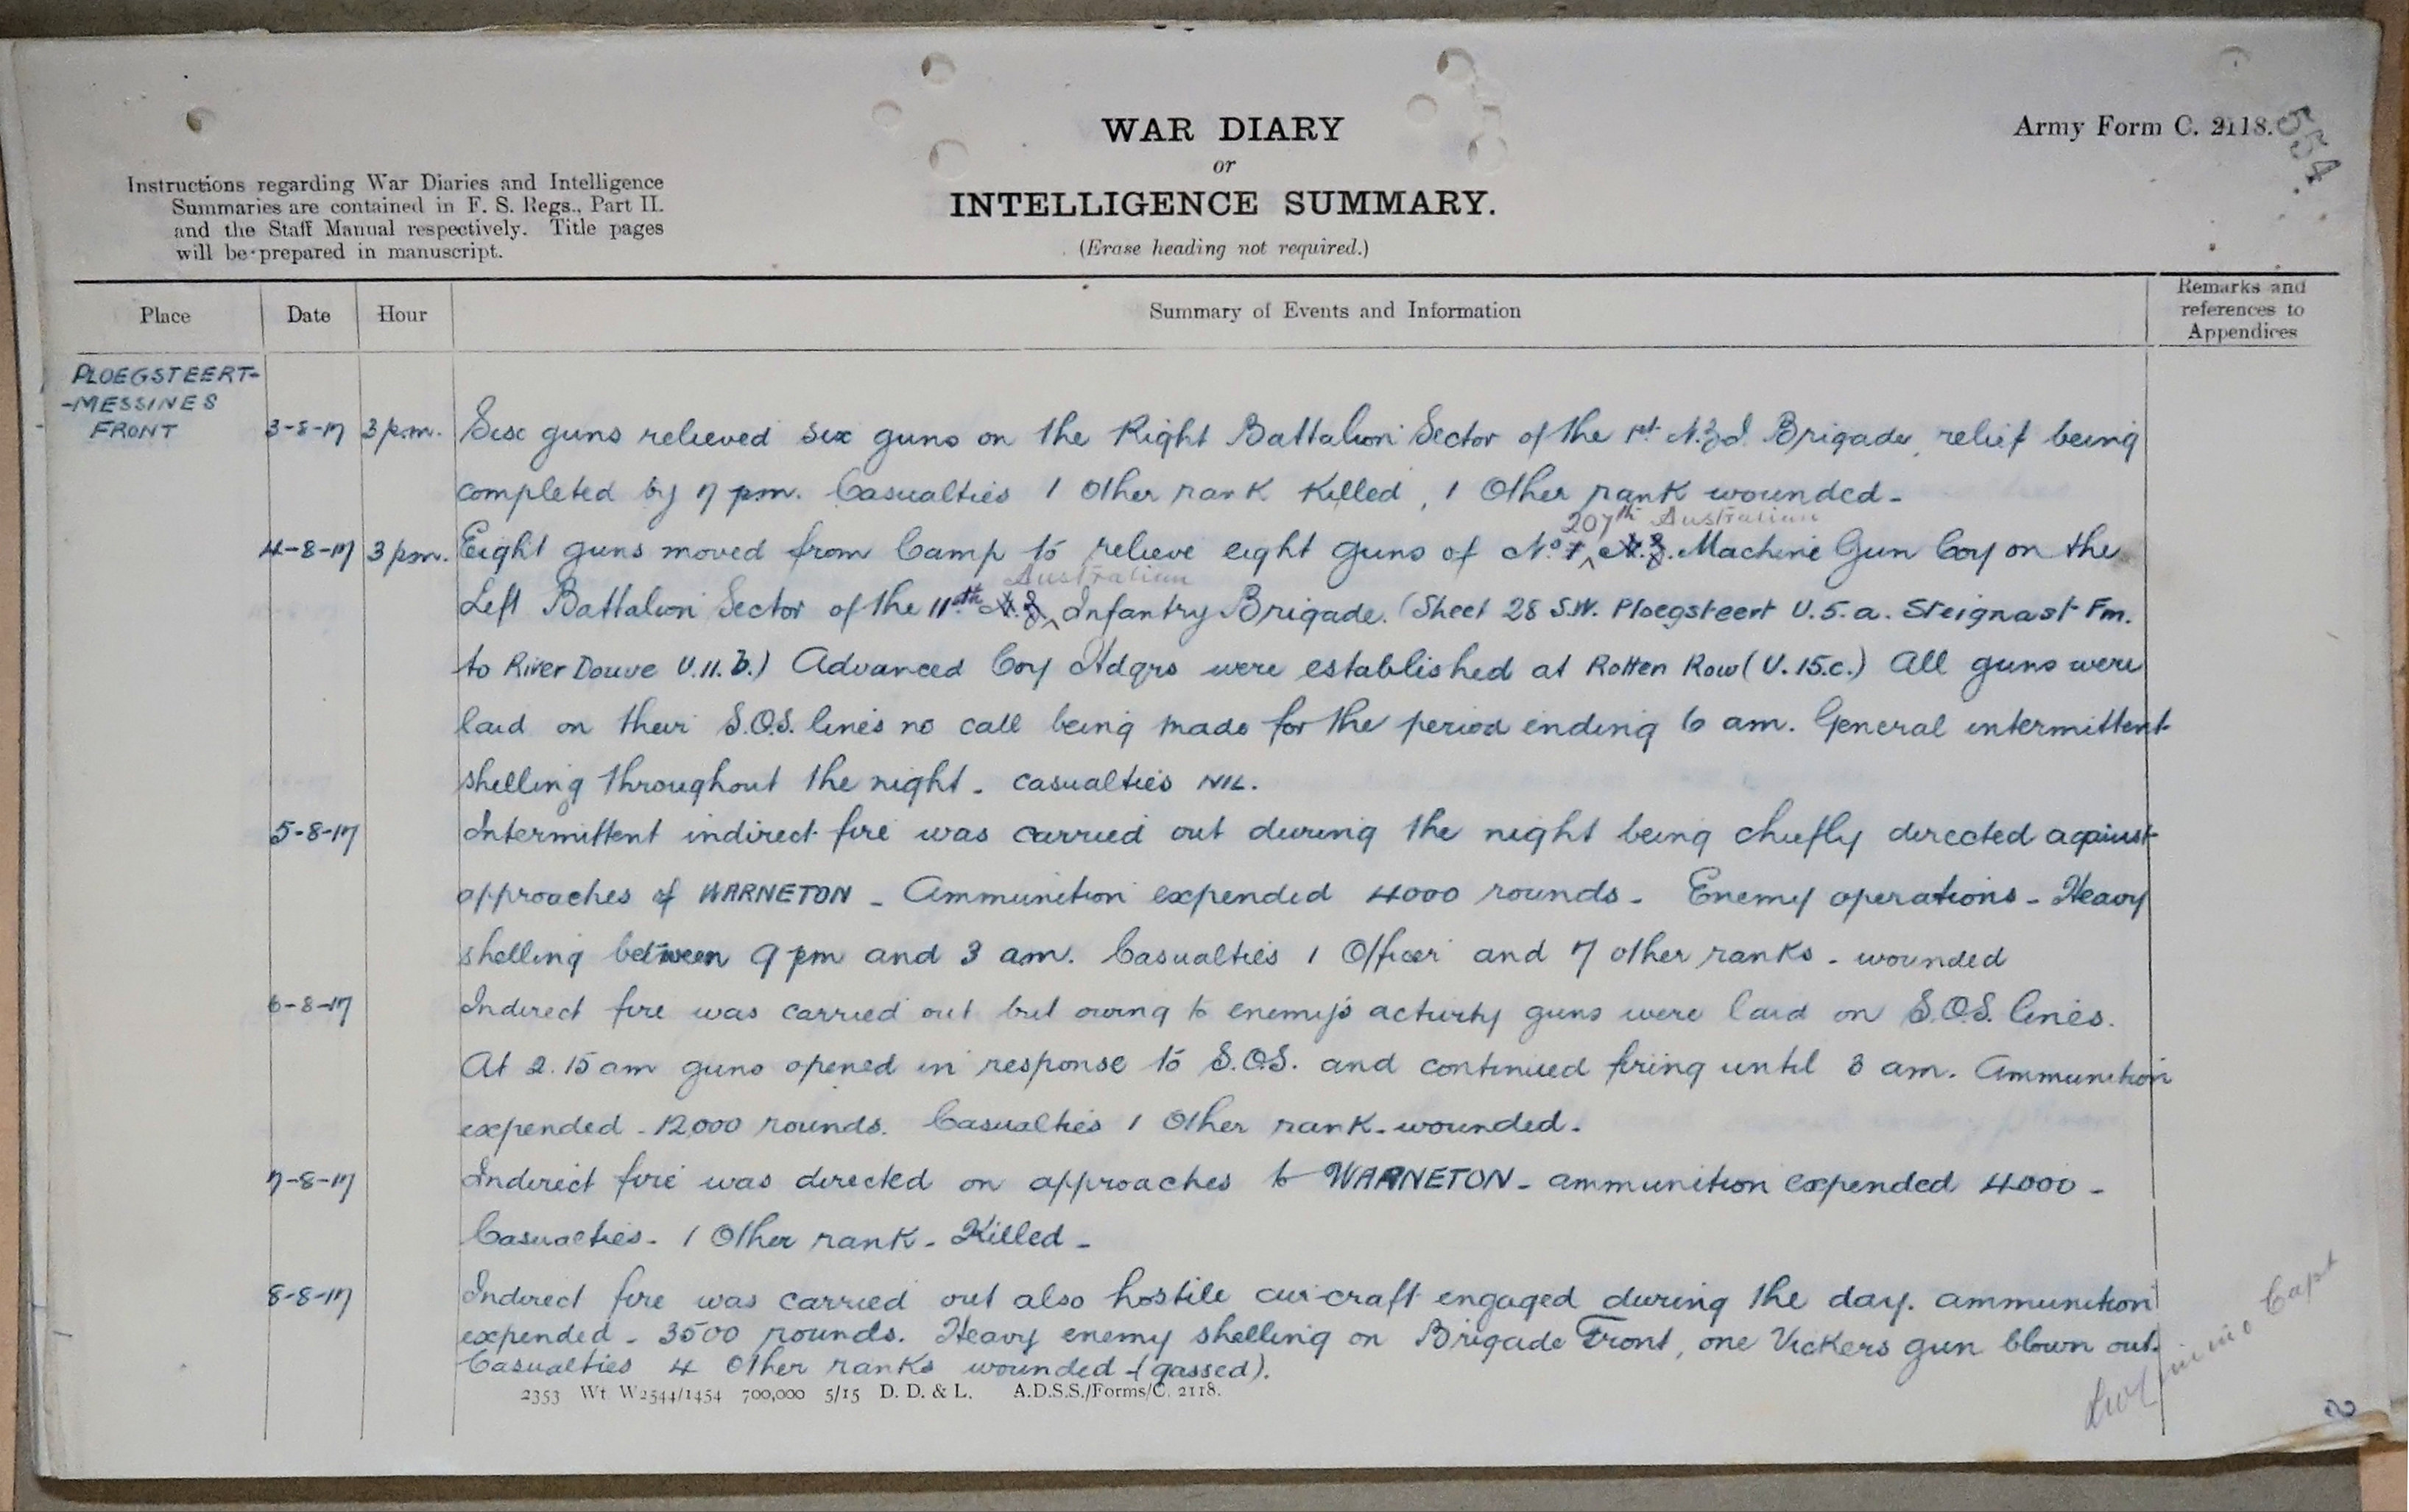 WAR DIARY
or
INTELLIGENCE SUMMARY.
(Erase heading not required.)
Army Form C. 2118.
554.
Instructions regarding War Diaries and Intelligence
Summaries are contained in F. S. Regs., Part II.
and the Staff Manual respectively. Title pages
will be prepared in manuscript.
Place Date Hour Summary of Events and Information Remarks and references to Appendices
PLOEGSTEERT-
-MESSINES
FRONT
3-8-17 3 p.m. Six guns relieved six guns on the Right Battalion Sector of the 1st N.Z.I. Brigade, relief being
completed by 7 pm. Casualties 1 Other rank Killed, 1 Other rank wounded-
207th Australian
4-8-17 3 pm. Eight guns moved from Camp to relieve eight guns of No. 1 N.Z. Machine Gun Coy on the
Australian
Left Battalion Sector of the 11th N.Z. Infantry Brigade. (Sheet 28 S.W. Ploegsteert U.5.a. Steignast Fm.
to River Douve U.11.b.) Advanced Coy Hdqrs were established at Rotten Row (U.15.c.) All guns were
laid on their S.O.S. lines no call being made for the period ending 6 am. General intermittent
shelling throughout the night - casualties NIL.
5-8-17 Intermittent indirect fire was carried out during the night being chiefly directed against
approaches of WARNETON - Ammunition expended 4000 rounds - Enemy operations - Heavy
shelling between 9 pm and 3 am. Casualties 1 Officer and 7 other ranks - wounded
6-8-17 Indirect fire was carried out but owing to enemy's activity guns were laid on S.O.S. lines.
At 2.15 am guns opened in response to S.O.S. and continued firing until 3 am. Ammunition
expended - 12,000 rounds. Casualties 1 Other rank - wounded.
7-8-17 Indirect fire was directed on approaches to WARNETON - ammunition expended 4000 -
Casualties - 1 Other rank - Killed -
8-8-17 Indirect fire was carried out also hostile air-craft engaged during the day. ammunition
expended - 3500 rounds. Heavy enemy shelling on Brigade Front, one Vickers gun blown out.
Casualties 4 Other ranks wounded - (gassed).
2353 Wt. W2544/1454 700,000 5/15 D. D. & L. A.D.S.S./Forms/C. 2118.
Capt
2